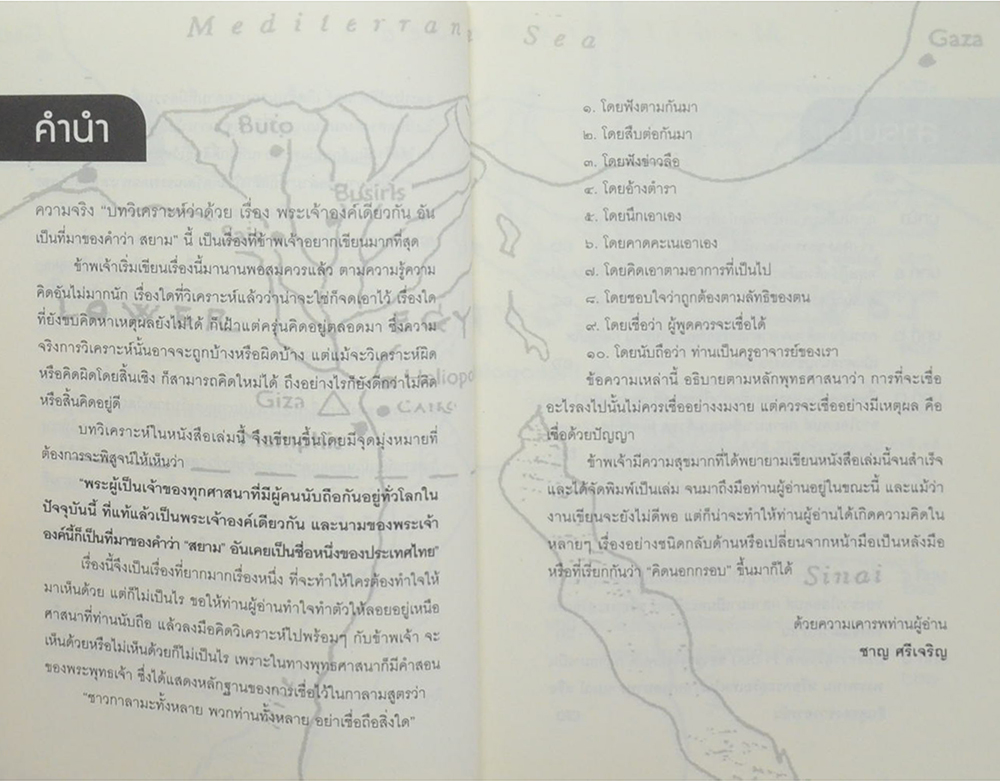 Mediterranean Sea
Gaza
Buto
Busiris
Sais
LOWER EGY
Heliopo
Giza
CAIRO
Memphis
Sinai
คำนำ
ความจริง “บทวิเคราะห์ว่าด้วย เรื่อง พระเจ้าองค์เดียวกัน อัน
เป็นที่มาของคำว่า สยาม” นี้ เป็นเรื่องที่ข้าพเจ้าอยากเขียนมากที่สุด
ข้าพเจ้าเริ่มเขียนเรื่องนี้มานานพอสมควรแล้ว ตามความรู้ความ
คิดอันไม่มากนัก เรื่องใดที่วิเคราะห์แล้วว่าน่าจะใช่ก็จดเอาไว้ เรื่องใด
ที่ยังขบคิดหาเหตุผลยังไม่ได้ ก็เฝ้าแต่ครุ่นคิดอยู่ตลอดมา ซึ่งความ
จริงการวิเคราะห์นั้นอาจจะถูกบ้างหรือผิดบ้าง แต่แม้จะวิเคราะห์ผิด
หรือคิดผิดโดยสิ้นเชิง ก็สามารถคิดใหม่ได้ ถึงอย่างไรก็ยังดีกว่าไม่คิด
หรือสิ้นคิดอยู่ดี
บทวิเคราะห์ในหนังสือเล่มนี้ จึงเขียนขึ้นโดยมีจุดมุ่งหมายที่
ต้องการจะพิสูจน์ให้เห็นว่า
“พระผู้เป็นเจ้าของทุกศาสนาที่มีผู้คนนับถือกันอยู่ทั่วโลกใน
ปัจจุบันนี้ ที่แท้แล้วเป็นพระเจ้าองค์เดียวกัน และนามของพระเจ้า
องค์นี้ก็เป็นที่มาของคำว่า “สยาม” อันเคยเป็นชื่อหนึ่งของประเทศไทย”
เรื่องนี้จึงเป็นเรื่องที่ยากมากเรื่องหนึ่ง ที่จะทำให้ใครต้องทำใจให้
มาเห็นด้วย แต่ก็ไม่เป็นไร ขอให้ท่านผู้อ่านทำใจทำตัวให้ลอยอยู่เหนือ
ศาสนาที่ท่านนับถือ แล้วลงมือคิดวิเคราะห์ไปพร้อมๆ กับข้าพเจ้า จะ
เห็นด้วยหรือไม่เห็นด้วยก็ไม่เป็นไร เพราะในทางพุทธศาสนาก็มีคำสอน
ของพระพุทธเจ้า ซึ่งได้แสดงหลักฐานของการเชื่อไว้ในกาลามสูตรว่า
“ชาวกาลามะทั้งหลาย พวกท่านทั้งหลาย อย่าเชื่อถือสิ่งใด”
๑. โดยฟังตามกันมา
๒. โดยสืบต่อกันมา
๓. โดยฟังข่าวลือ
๔. โดยอ้างตำรา
๕. โดยนึกเอาเอง
๖. โดยคาดคะเนเอาเอง
๗. โดยคิดเอาตามอาการที่เป็นไป
๘. โดยชอบใจว่าถูกต้องตามลัทธิของตน
๙. โดยเชื่อว่า ผู้พูดควรจะเชื่อได้
๑๐. โดยนับถือว่า ท่านเป็นครูอาจารย์ของเรา
ข้อความเหล่านี้ อธิบายตามหลักพุทธศาสนาว่า การที่จะเชื่อ
อะไรลงไปนั้นไม่ควรเชื่ออย่างงมงาย แต่ควรจะเชื่ออย่างมีเหตุผล คือ
เชื่อด้วยปัญญา
ข้าพเจ้ามีความสุขมากที่ได้พยายามเขียนหนังสือเล่มนี้จนสำเร็จ
และได้จัดพิมพ์เป็นเล่ม จนมาถึงมือท่านผู้อ่านอยู่ในขณะนี้ และแม้ว่า
งานเขียนจะยังไม่ดีพอ แต่ก็น่าจะทำให้ท่านผู้อ่านได้เกิดความคิดใน
หลายๆ เรื่องอย่างชนิดกลับด้านหรือเปลี่ยนจากหน้ามือเป็นหลังมือ
หรือที่เรียกกันว่า “คิดนอกกรอบ” ขึ้นมาก็ได้
ด้วยความเคารพท่านผู้อ่าน
ชาญ ศรีเจริญ